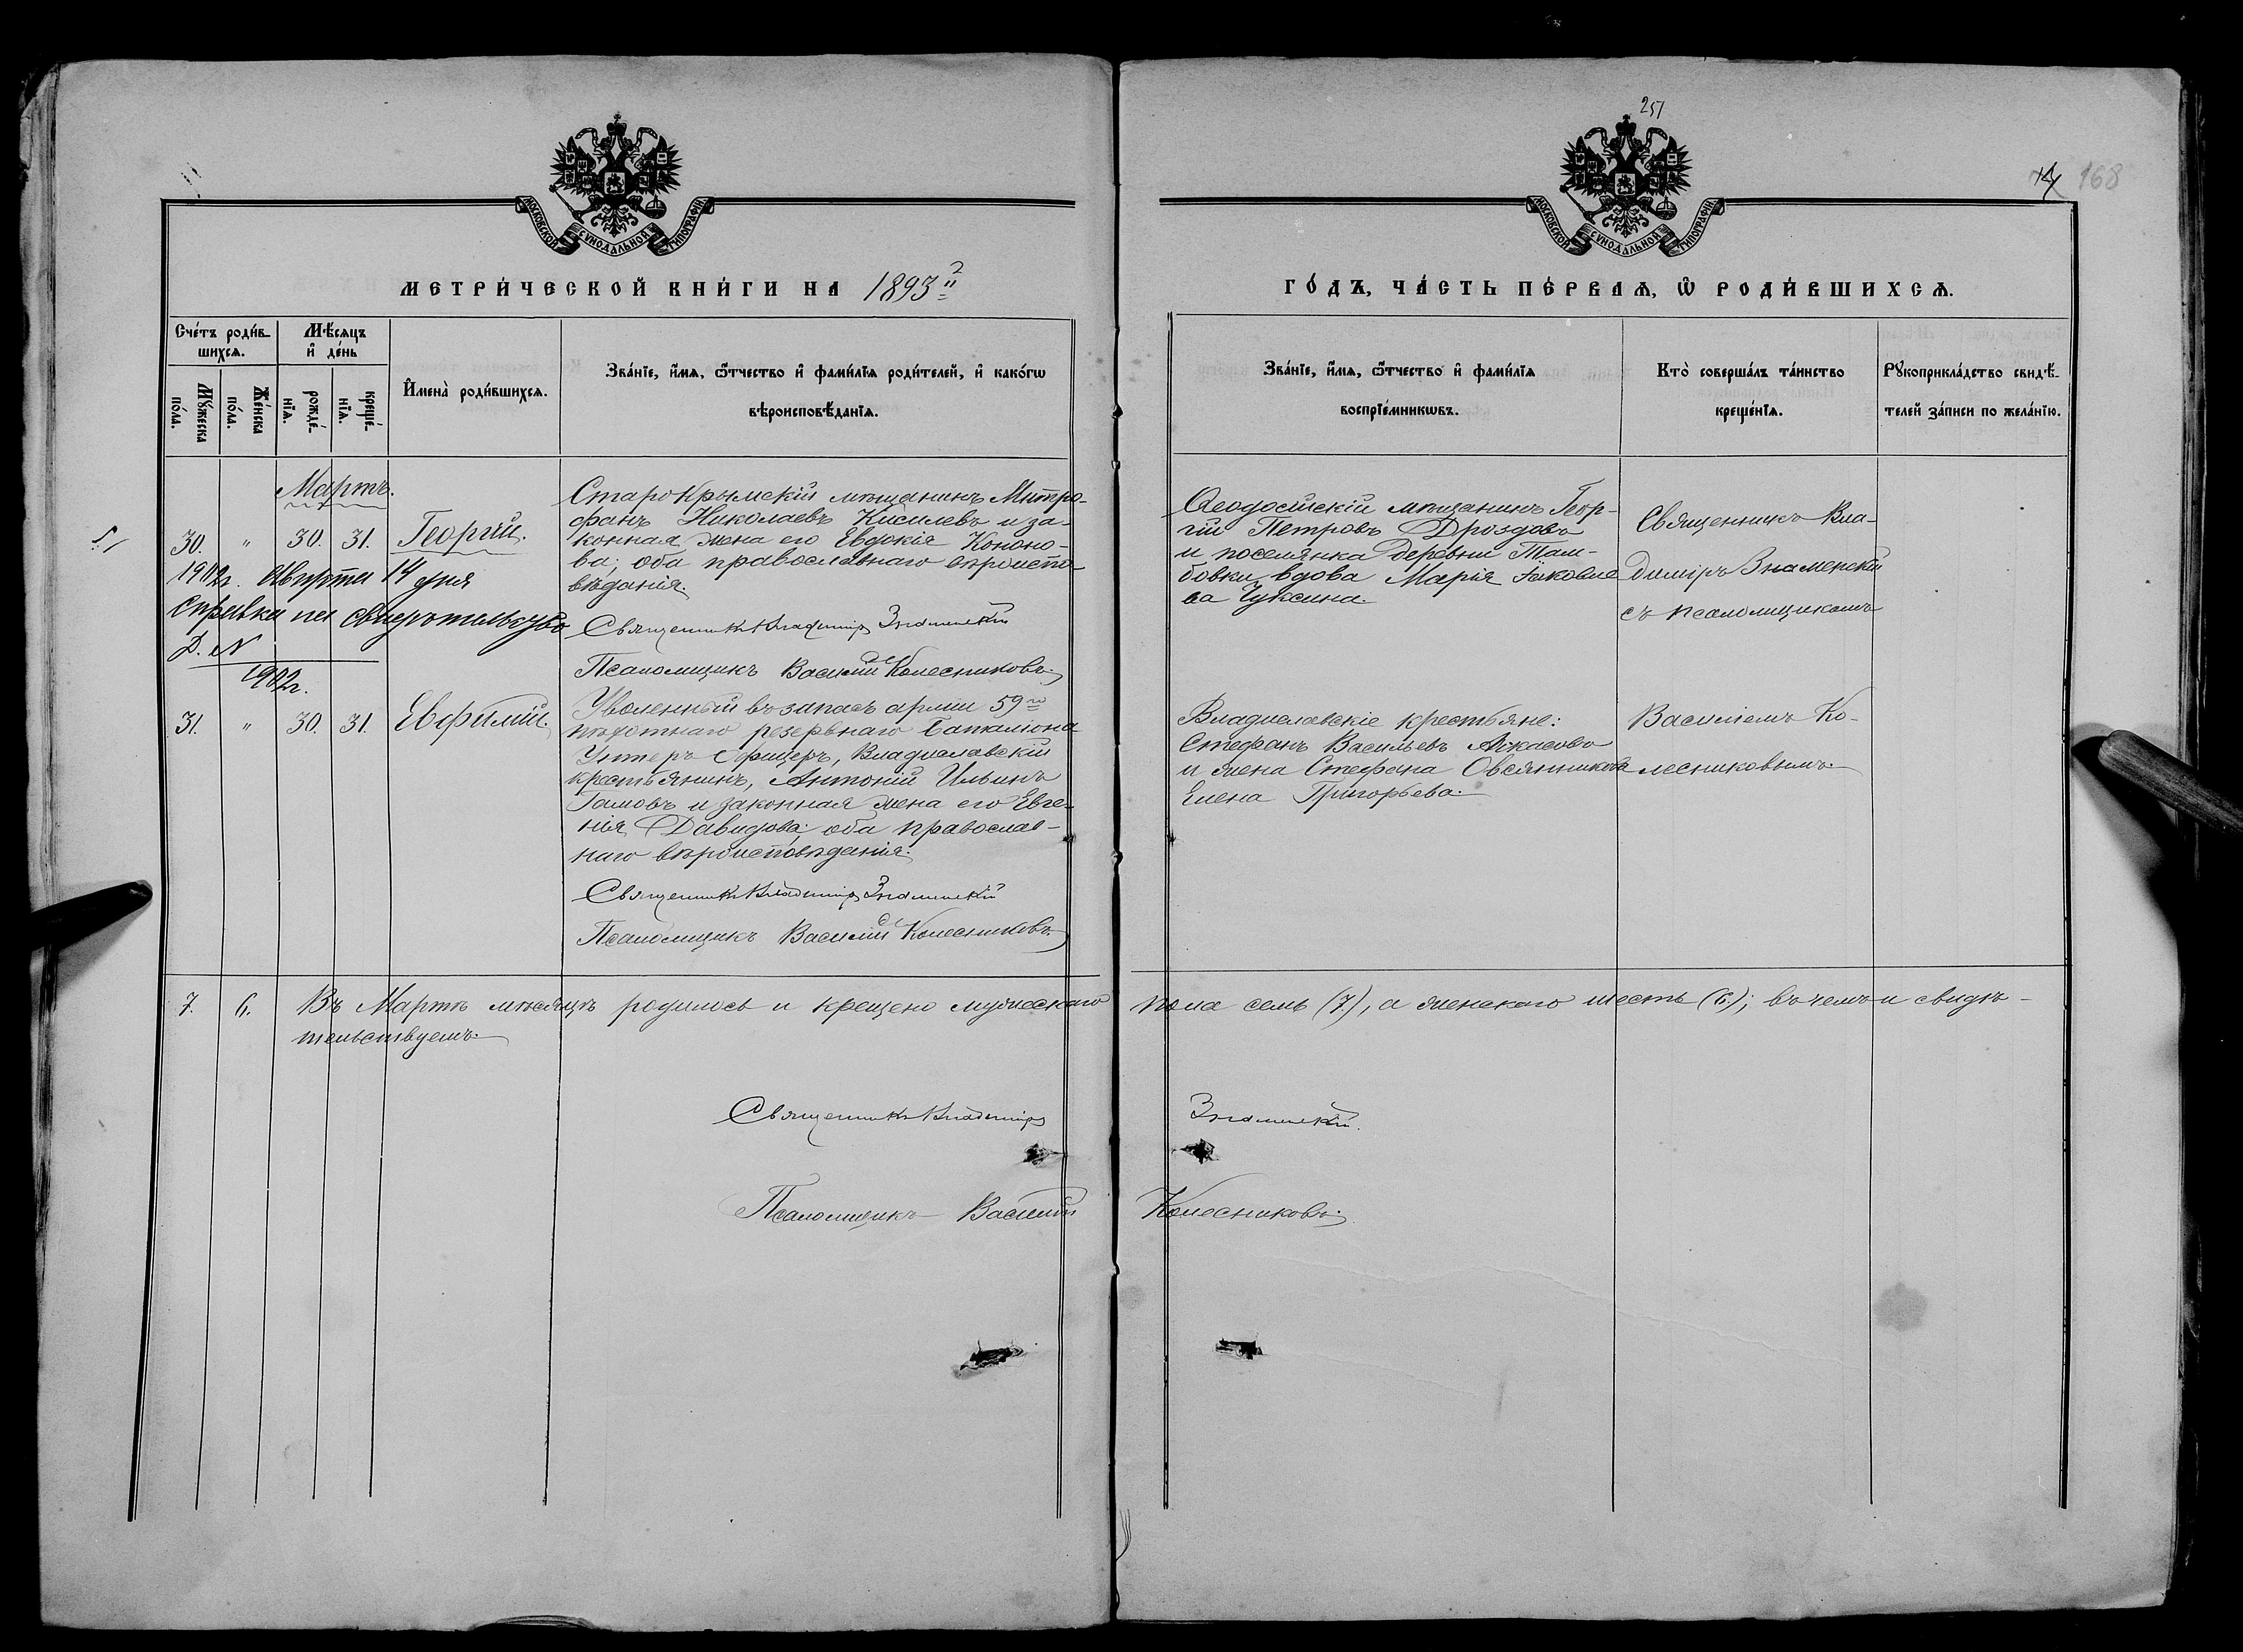 251
14 168
МОСКОВСКОЙ СѴНОДАЛЬНОЙ ТИПОГРАФІИ
МОСКОВСКОЙ СѴНОДАЛЬНОЙ ТИПОГРАФІИ
МЕТРИ́ЧЕСКОЙ КНИ́ГИ НА 1893
ГО́ДЪ, ЧА́СТЬ ПЕ́РВАѦ, Ѡ҆ РОДИ́ВШИХСѦ.
Сче́тъ роди́в-
шихсѧ.
Мꙋ́жеска по́ла.
Же́нска по́ла.
Мѣ́сѧцъ
и҆ де́нь
рожде́-
нїѧ.
креще́-
нїѧ.
И҆мена̀ роди́вшихсѧ.
Зва́нїе, и҆́мѧ, ѻ҆́тчество и҆ фами́лїѧ роди́телей, и҆ како́гѡ
вѣроисповѣ́данїѧ.
Зва́нїе, и҆́мѧ, ѻ҆́тчество и҆ фами́лїѧ
воспрїе́мникѡвъ.
Кто̀ соверша́лъ та́инство
креще́нїѧ.
Рꙋкоприкла́дство свидѣ́-
телей за́писи по жела́нїю.
Мартъ.
30. " 30. 31. Георгій.
Старокрымскій мѣщанинъ Митро-
фанъ Николаевъ Кисилевъ и за-
конная жена его Евдокія Кононо-
ва; оба православнаго вѣроиспо-
вѣданія.
Священникъ Владиміръ Знаменскій
Псаломщикъ Василій Колесниковъ
Ѳеодосійскій мѣщанинъ Геор-
гій Петровъ Дроздовъ
и поселянка деревни Там-
бовки, вдова Марія Іаковле
ва Чуксина.
Священникъ Вла-
диміръ Знаменскій
съ псаломщикомъ
1912г. Августа 14 дня
Справка
Д. N
1912г.
31. " 30. 31. Евфимій.
Уволенный въ запасъ арміи 59го
пѣхотнаго резервнаго баталіона
Унтеръ офицеръ, Владиславскій
крестьянинъ, Антоній Ильинъ
Гамовъ и законная жена его Евге-
нія Давидова; оба православ-
наго вѣроисповѣданія.
Священникъ Владиміръ Знаменскій
Псаломщикъ Василій Колесниковъ
Владиславскіе крестьяне:
Стефанъ Васильевъ
и жена Стефана Овсянникова
Елена Григорьева.
Василіемъ Ко-
лесниковымъ.
7. 6. Въ Мартѣ мѣсяцѣ родилось и крещено мужескаго пола семь (7.), а женскаго шесть (6.); въ чемъ и свидѣ-
тельствуемъ.
Священникъ Владиміръ Знаменскій.
Псаломщикъ Василій Колесниковъ